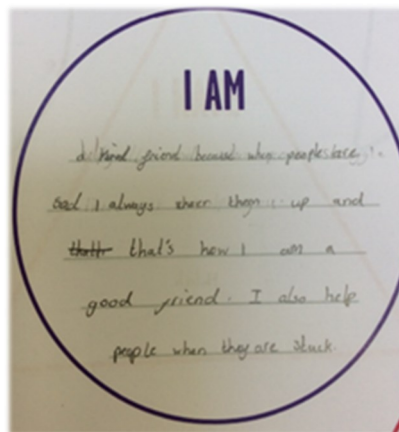 I AM
a kind friend because when people are
sad I always cheer them up and
that's how I am a
good friend. I also help
people when they are stuck.